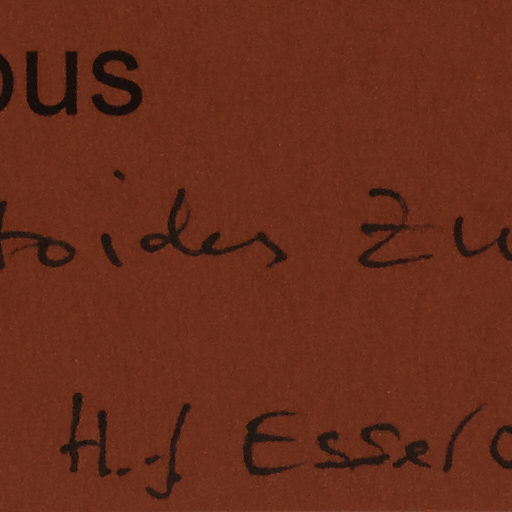 ous
toides Zu
H.J Esser